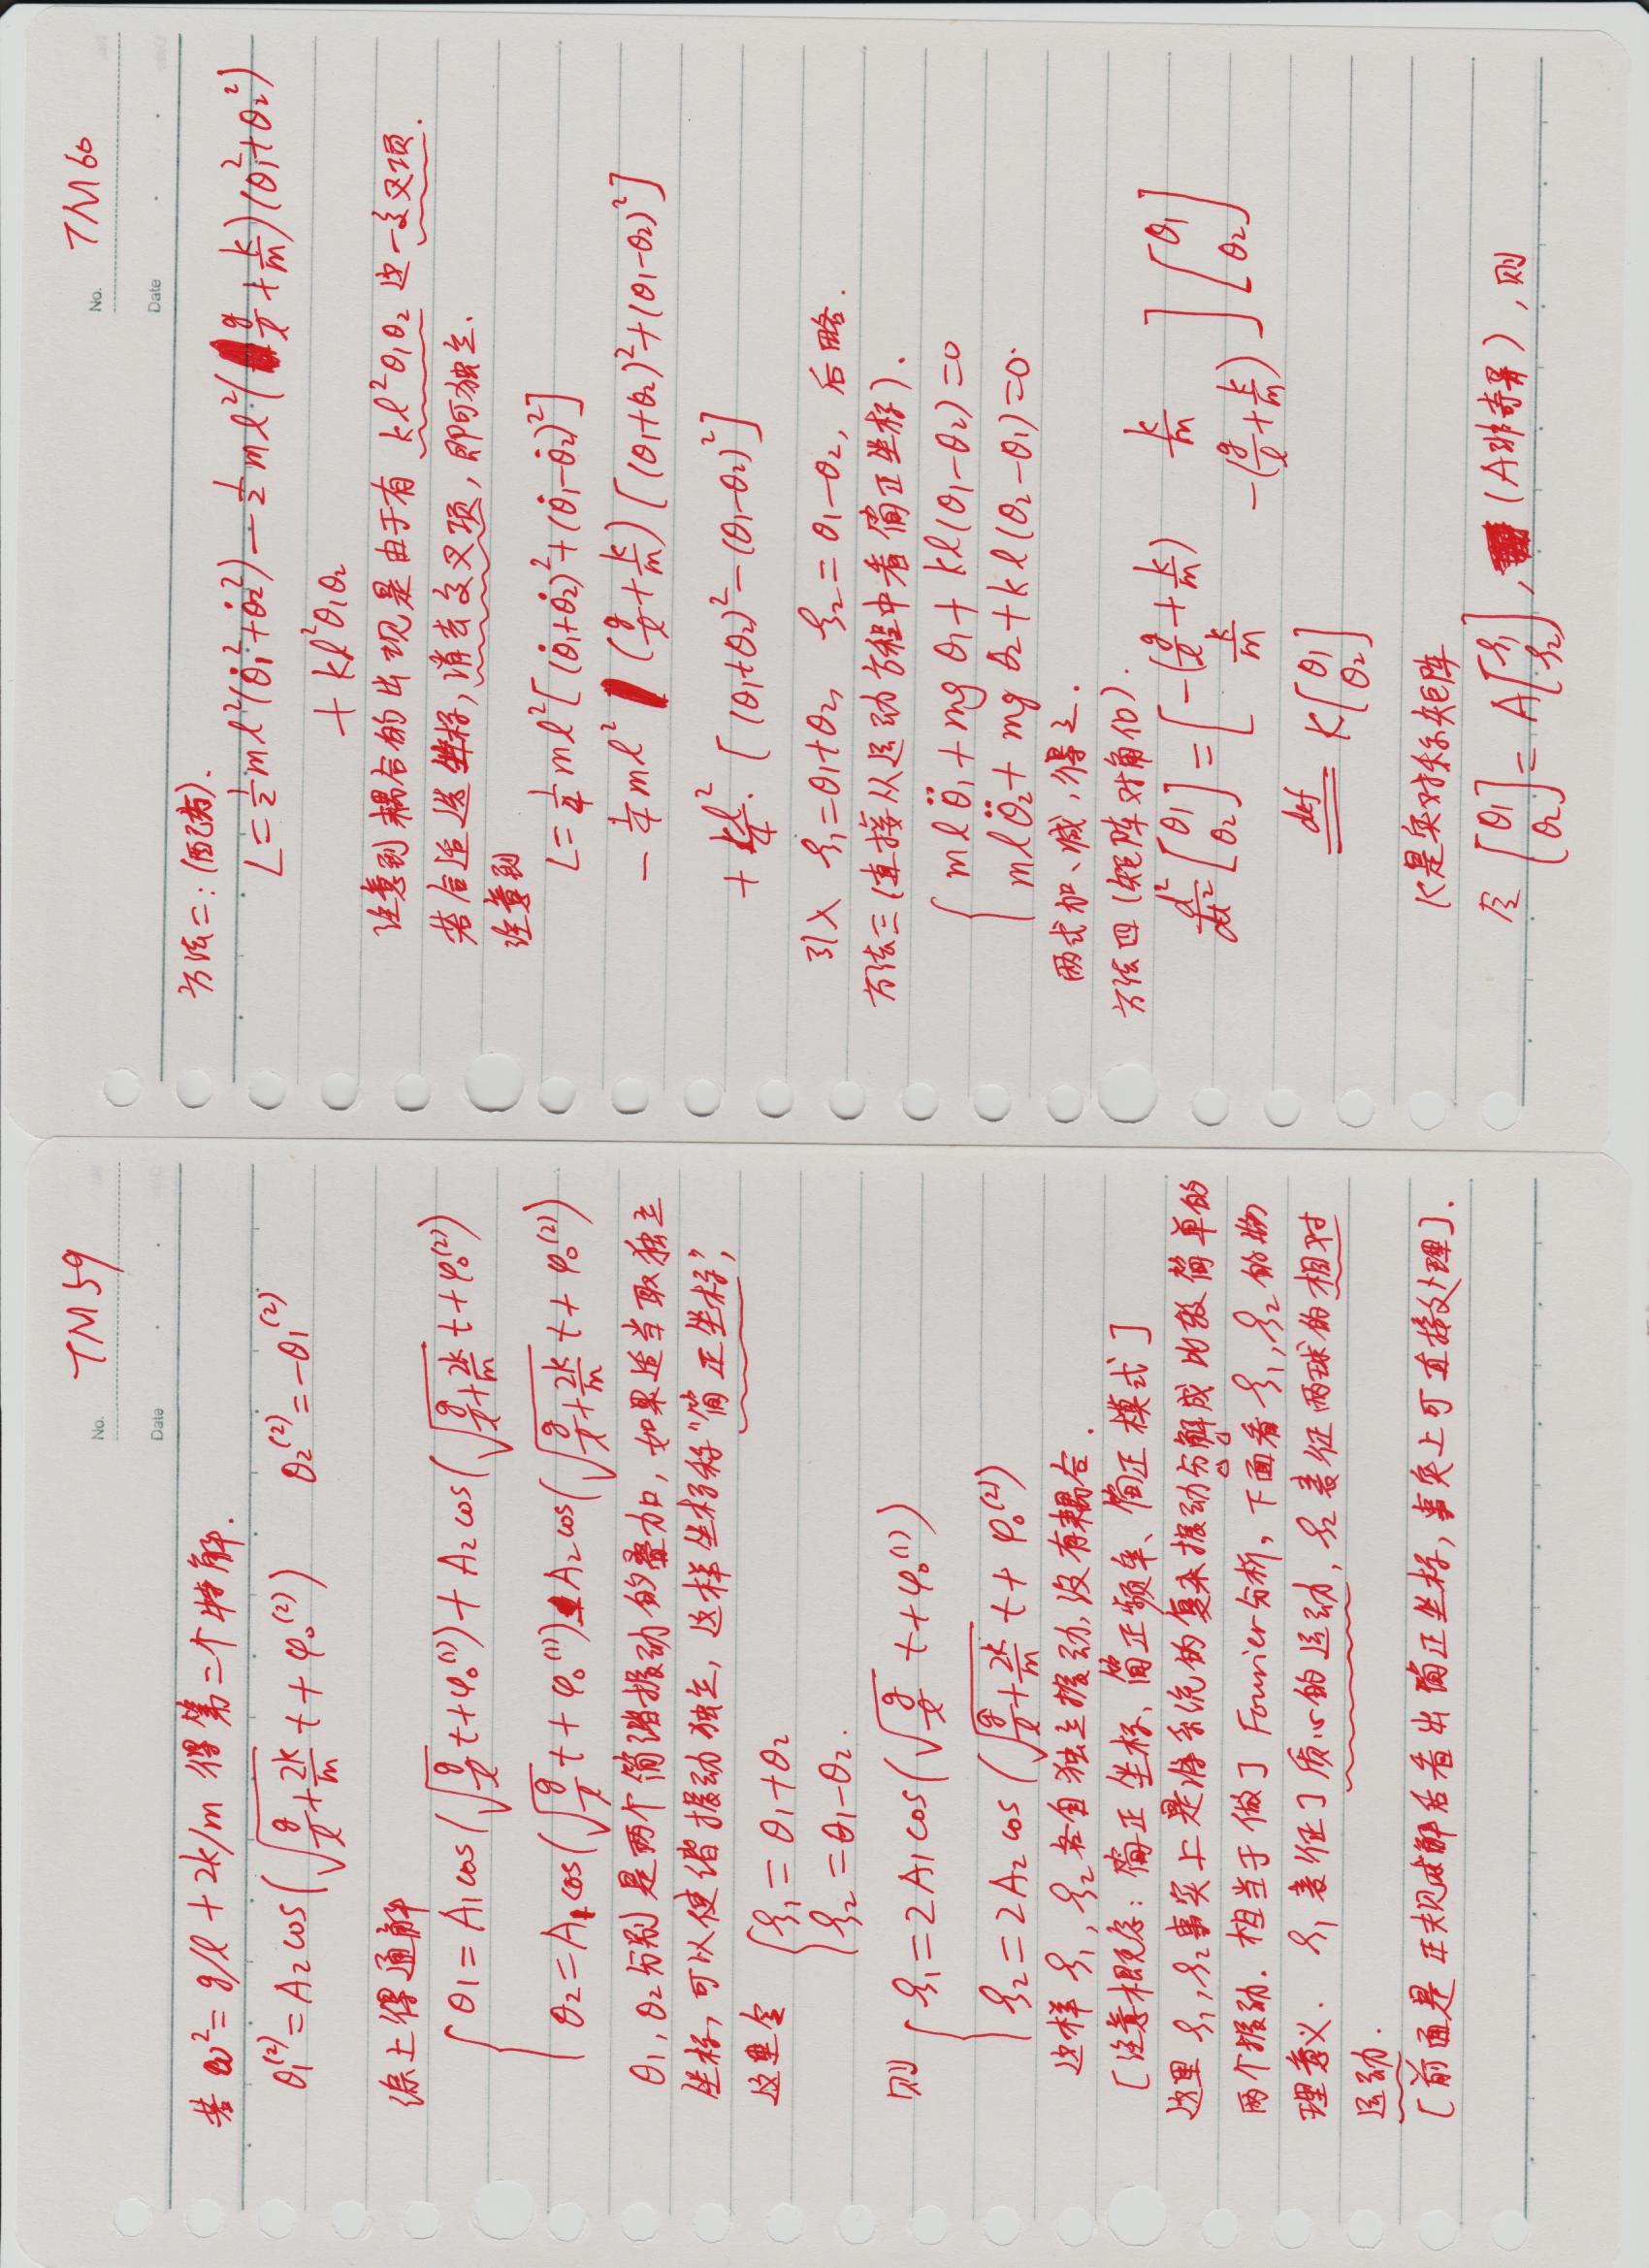 No. TM59
Date
若 ω² = g/l + 2k/m 得第二个特解.
θ₁⁽²⁾ = A₂ cos(√(g/l + 2k/m) t + φ₀⁽²⁾)  θ₂⁽²⁾ = -θ₁⁽²⁾
综上得通解
θ₁ = A₁ cos(√(g/l) t + φ₀⁽¹⁾) + A₂ cos(√(g/l + 2k/m) t + φ₀⁽²⁾)
θ₂ = A₁ cos(√(g/l) t + φ₀⁽¹⁾) - A₂ cos(√(g/l + 2k/m) t + φ₀⁽²⁾)
θ₁, θ₂ 分别是两个简谐振动的叠加, 如果适当取独立
坐标, 可以使谐振动独立, 这样坐标称“简正坐标”,
这里令 { ξ₁ = θ₁+θ₂
ξ₂ = θ₁-θ₂.
则 { ξ₁ = 2A₁ cos(√(g/l) t + φ₀⁽¹⁾)
ξ₂ = 2A₂ cos(√(g/l + 2k/m) t + φ₀⁽²⁾)
这样 ξ₁, ξ₂ 各自独立振动, 没有耦合.
[注意概念: 简正坐标、简正频率、简正模式]
这里 ξ₁, ξ₂ 事实上是将系统的复杂振动分解成比较简单的
两个振动. 相当于做了 Fourier 分析, 下面看 ξ₁, ξ₂ 的物
理意义. ξ₁ 表征了质心的运动, ξ₂ 表征两球的相对
运动.
[前面是正规求解后看出简正坐标, 事实上可直接处理].
No. TM60
Date
方法二: (配方).
L = ½ml²(θ̇₁²+θ̇₂²) - ½ml²(g/l + k/m)(θ₁²+θ₂²)
+ kl²θ₁θ₂
注意到耦合的出现是由于有 kl²θ₁θ₂ 这一交叉项.
若合适选坐标, 消去交叉项, 即可独立.
注意到
L = ¼ml²[(θ̇₁+θ̇₂)²+(θ̇₁-θ̇₂)²]
- ¼ml² (g/l + k/m) [(θ₁+θ₂)²+(θ₁-θ₂)²]
+ kl²/4 · [(θ₁+θ₂)²-(θ₁-θ₂)²]
引入 ξ₁=θ₁+θ₂, ξ₂=θ₁-θ₂, 后略.
方法三 (直接从运动方程中看简正坐标).
{ mlθ̈₁ + mgθ₁ + kl(θ₁-θ₂) = 0
mlθ̈₂ + mgθ₂ + kl(θ₂-θ₁) = 0.
两式加、减, 得之.
方法四 (矩阵对角化).
d²/dt² [θ₁ θ₂] = [-(g/l + k/m)  k/m ; k/m  -(g/l + k/m)] [θ₁ θ₂]
def = K[θ₁ θ₂]
K是实对称矩阵
令 [θ₁ θ₂] = A[ξ₁ ξ₂], (A非奇异), 则